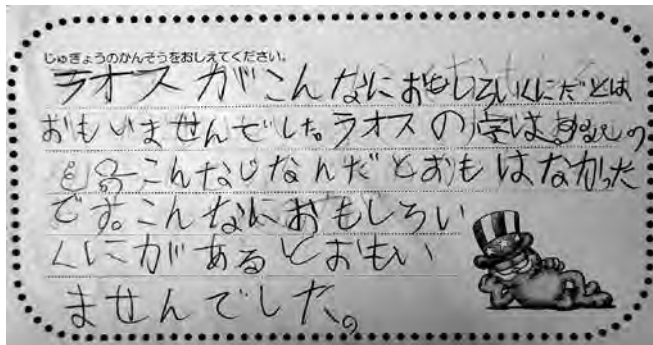 じゅぎょうのかんそうをおしえてください。
ラオスがこんなにおもしろいくにだとは
おもいませんでした。ラオスの字は
こんなじなんだとおもはなかった
です。こんなにおもしろい
くにがあるとおもい
ませんでした。